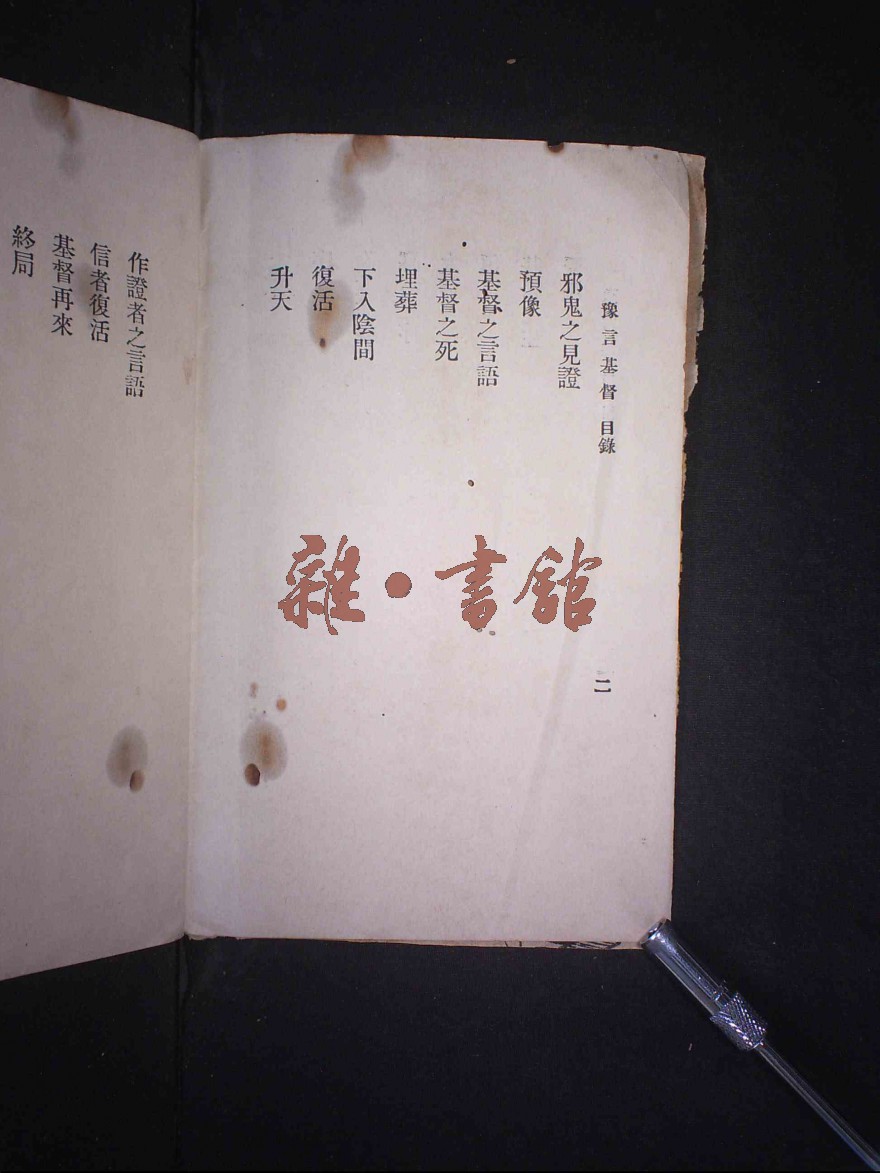 豫言基督 目錄
二
邪鬼之見證
預像
基督之言語
基督之死
埋葬
下入陰間
復活
升天
作證者之言語
信者復活
基督再來
終局
雜·書館